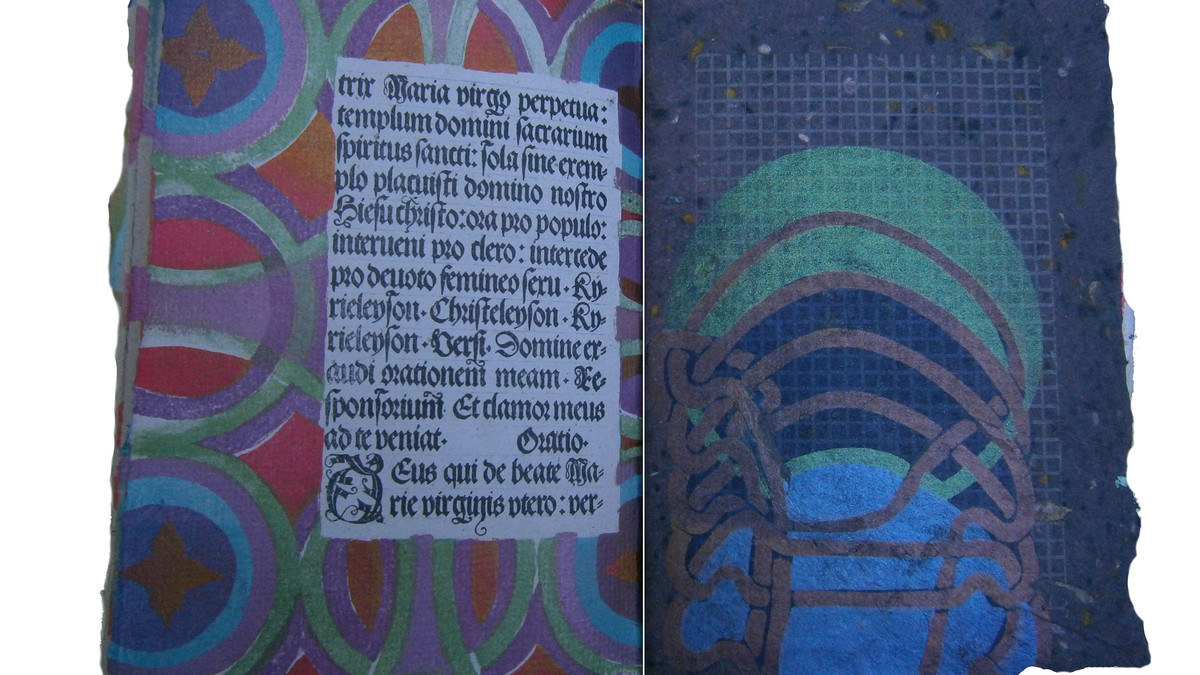 trix Maria virgo perpetua:
templum domini sacrarium
spiritus sancti: sola sine exem-
plo placuisti domino nostro
Hiesu christo: ora pro populo:
interueni pro clero: intercede
pro deuoto femineo sexu. Ky-
rieleyson. Christeleyson. Ky-
rieleyson. Versꝰ. Domine ex-
audi orationem meam. Re-
sponsorium Et clamor meus
ad te veniat. Oratio.
DEus qui de beate Ma-
rie virginis vtero: ver-